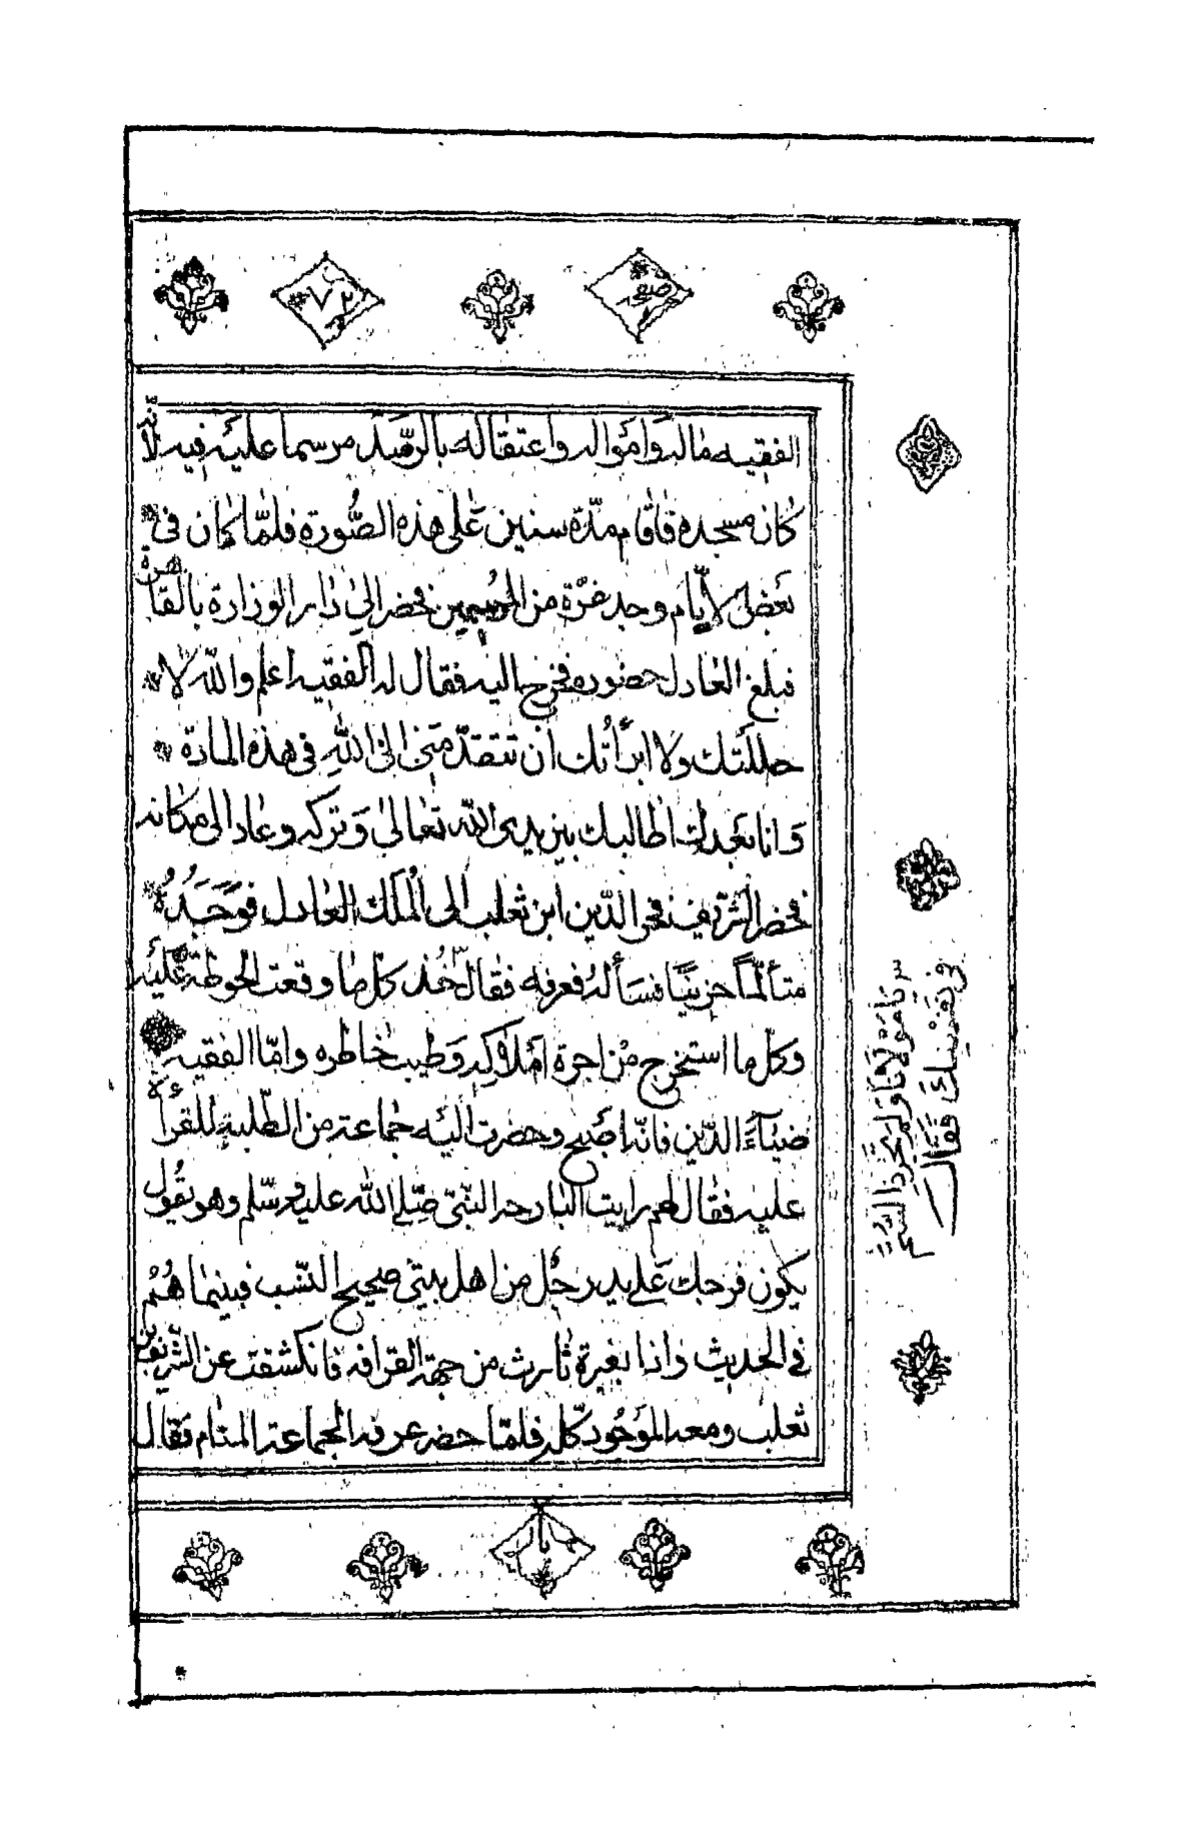 صفحه
٧٢
الفقيه ماله وامواله واعتقاله بالرصد مرسما عليه فيه لانه
كان مسجده فاقام مدّة سنين على هذه الصّورة فلمّا كان فى
بعض الايّام وجد غرّة من المرسمين فحضر الى دار الوزارة بالقاهرة
فبلغ العادل حضوره فخرج اليه فقال له الفقيه اعلم والله لا
حاللتك ولا ابرأتك ان تتقدّمنى الى الله فى هذه المادّة
وانا بعدك اطالبك بين يدى الله تعالى وتركه وعاد الى مكانه
فحضر الشّريف فخر الدّين ابن ثعلب الى الملك العادل فوجده
متألّماً حزينًا فسأله فعرفه فقال خذ كل ما وقعت الحوطة عليه
وكل ما استخرج من اجرة املاكه وطيب خاطره وامّا الفقيه
ضيآء الدّين فانّه اصبح وحضرت اليه جماعة من الطّلبة للقراءة
عليه فقال لهم رايت البارحه النّبىّ صلّى الله عليه وسلّم وهو يقول
يكون فرجك على يد رجل من اهل بيتى صحيح النّسب فبينما هم
فى الحديث واذا بغبرة ثارت من جهة القرافه فانكشفت عن الشّريف بن
ثعلب ومعه الموجود كلّه فلمّا حضر عرفه الجماعة المنام فقال
يا مولانا ولم
فى نفسك فقال